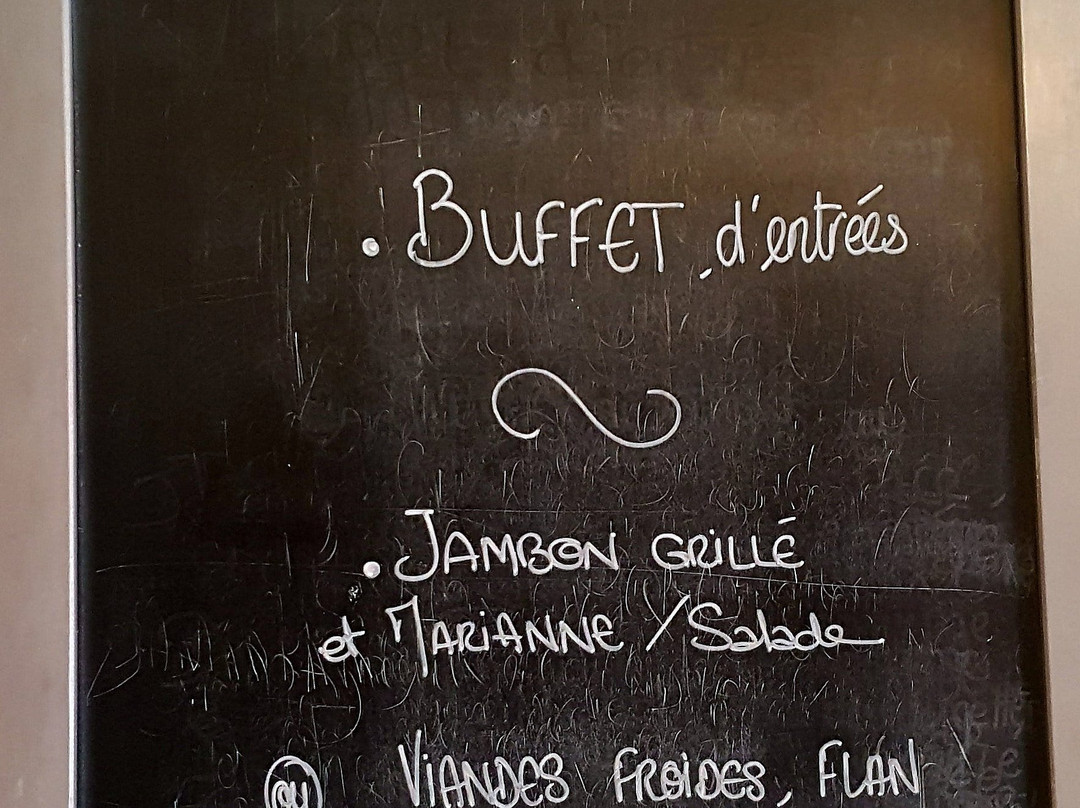 • BUFFET d'entrées
• JAMBON GRILLÉ
et MARIANNE / Salade
ou VIANDES FROIDES, FLAN